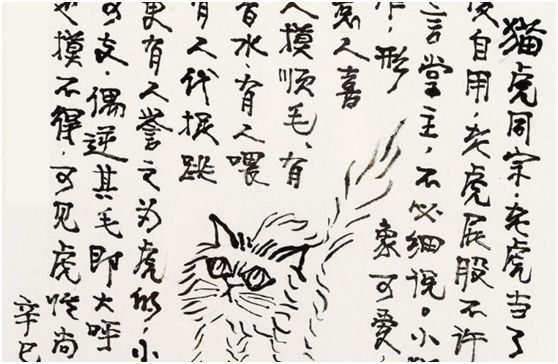 猫虎同宗·老虎当了
愎自用·老虎屁股不许
言堂主，不必细说。小
形
象可爱
惹人喜
人摸顺毛·有
水·有人喂
有人代捉跳
更有人誉之为虎仔，小
可支·偶逆其毛即大呼
也摸不得·可见虎性尚
辛巳